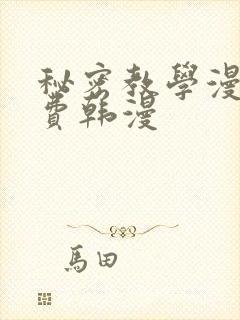 秘密教學漫
費韓漫
馬田